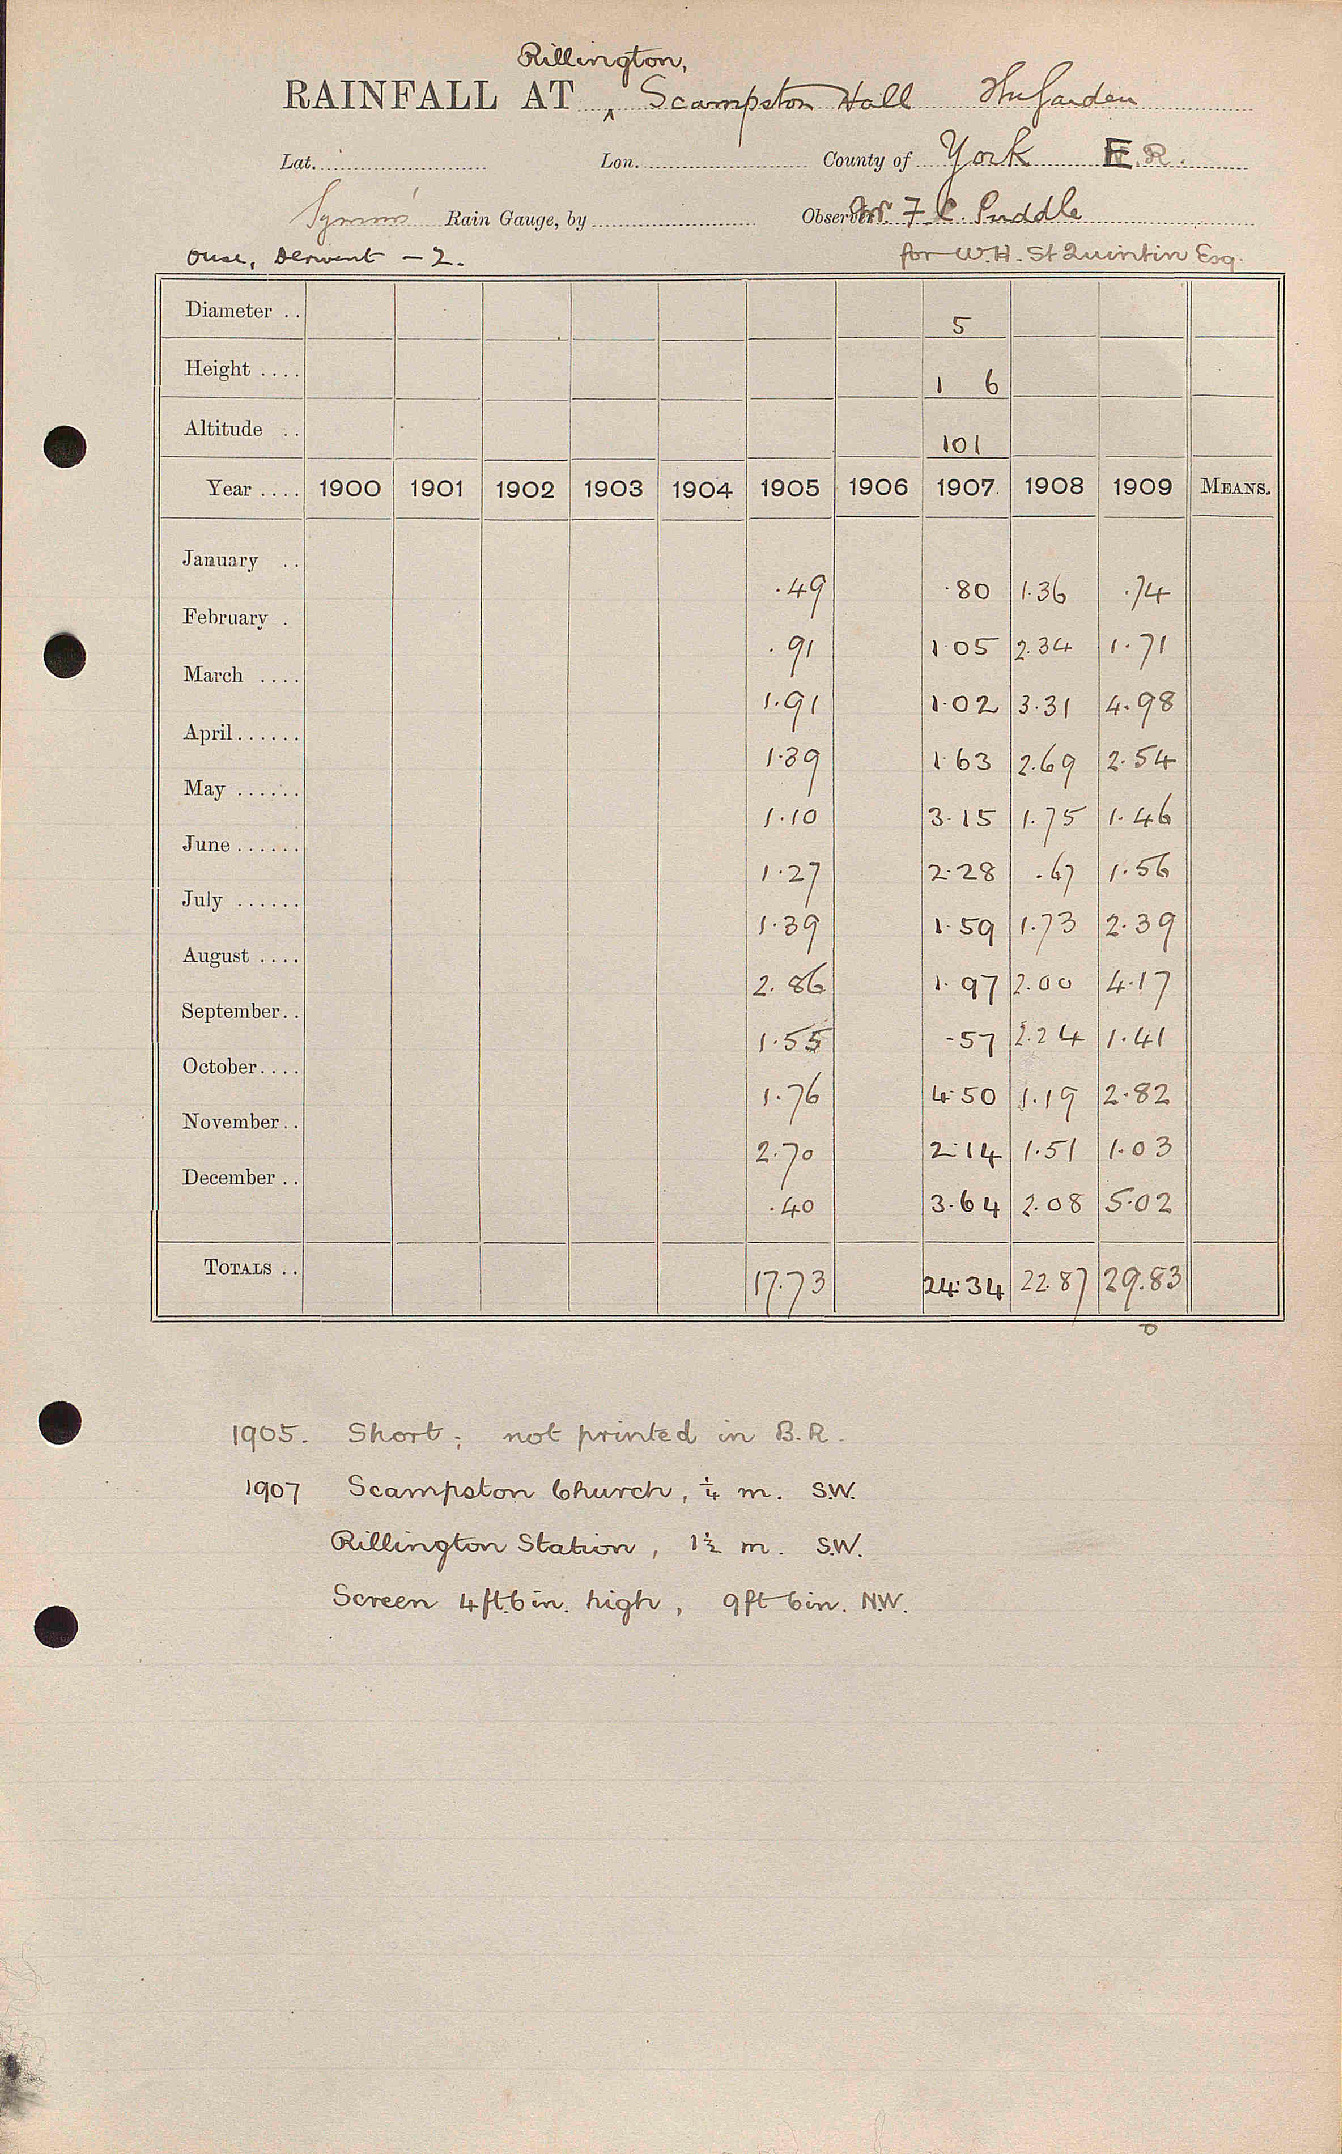 Rillington,
RAINFALL AT Scampston Hall The Garden
Lat. Lon. County of York E.R.
Symons' Rain Gauge, by Observer F. C. Puddle
Ouse, Derwent - 2. for W.H. St Quintin Esq.
Diameter .. 5
Height .... 1 6
Altitude .. 101
Year .... 1900 1901 1902 1903 1904 1905 1906 1907 1908 1909 MEANS.
January .. .49 .80 1.36 .74
February . .91 1.05 2.34 1.71
March .... 1.91 1.02 3.31 4.98
April ...... 1.39 1.63 2.69 2.54
May ...... 1.10 3.15 1.75 1.46
June ...... 1.27 2.28 .67 1.56
July ...... 1.39 1.59 1.73 2.39
August .... 2.86 1.97 2.00 4.17
September .. 1.55 .57 2.24 1.41
October .... 1.76 4.50 1.19 2.82
November .. 2.70 2.14 1.51 1.03
December .. .40 3.64 2.08 5.02
TOTALS .. 17.73 24.34 22.87 29.83
1905. Short; not printed in B.R.
1907 Scampston Church, ¼ m. S.W.
Rillington Station, 1½ m. S.W.
Screen 4ft.6in. high, 9ft 6in. N.W.